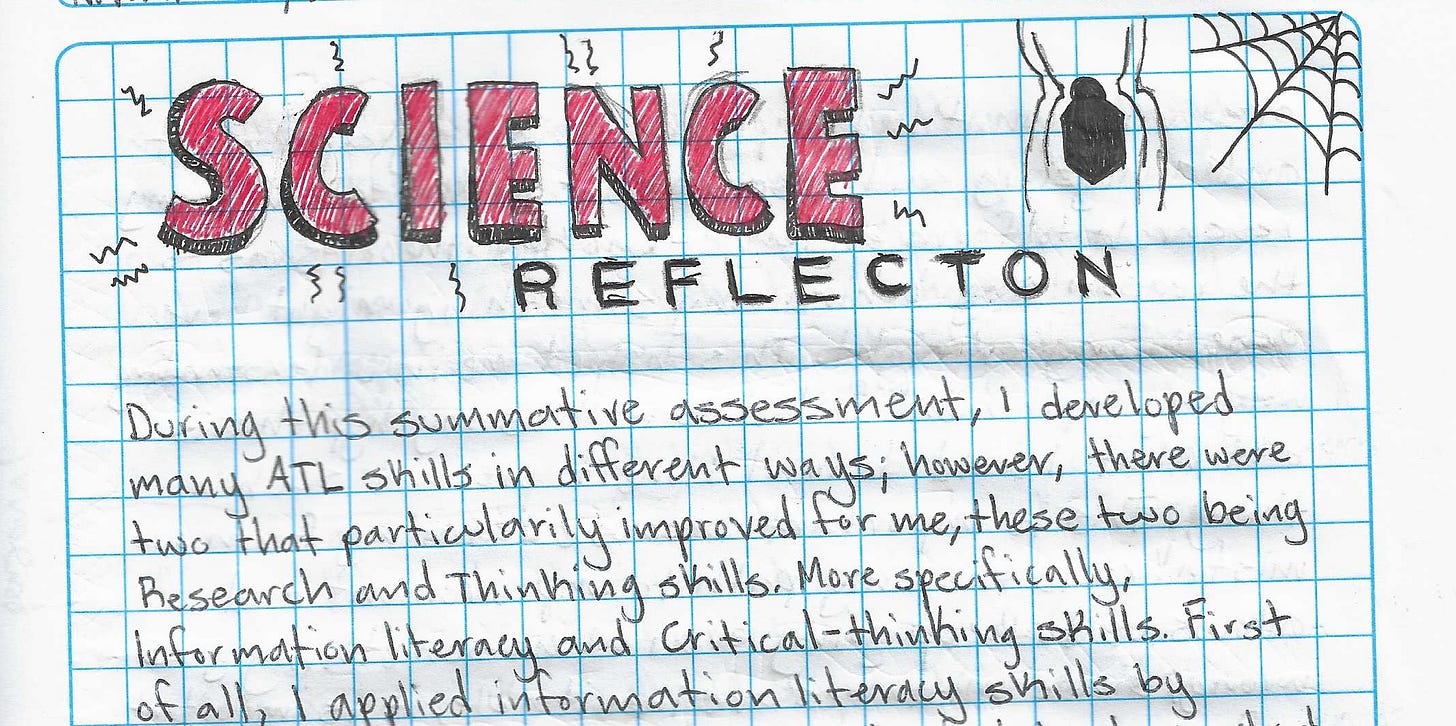 SCIENCE
REFLECTON
During this summative assessment, I developed
many ATL skills in different ways; however, there were
two that particularily improved for me, these two being
Research and Thinking skills. More specifically,
Information literacy and Critical-thinking skills. First
of all, I applied information literacy skills by